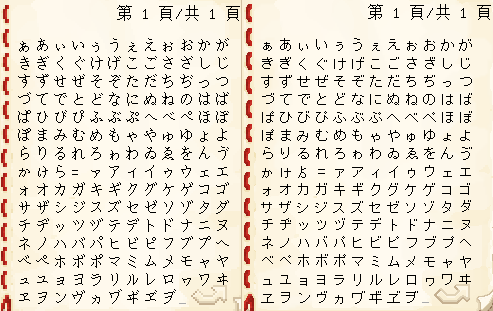 第 1 頁/共 1 頁
ぁあぃいぅうぇえぉおかが
きぎくぐけげこごさざしじ
すずせぜそぞただちぢっつ
づてでとどなにぬねのはば
ぱひびぴふぶぷへべぺほぼ
ぽまみむめもゃやゅゆょよ
らりるれろゎわゐゑをんゔ
ゕゖゟ゠ァアィイゥウェエ
ォオカガキギクグケゲコゴ
サザシジスズセゼソゾタダ
チヂッツヅテデトドナニヌ
ネノハバパヒビピフブプヘ
ベペホボポマミムメモャヤ
ュユョヨラリルレロヮワヰ
ヱヲンヴヵヷヸヹヺ_
第 1 頁/共 1 頁
ぁあぃいぅうぇえぉおかが
きぎくぐけげこごさざしじ
すずせぜそぞただちぢっつ
づてでとどなにぬねのはば
ぱひびぴふぶぷへべぺほぼ
ぽまみむめもゃやゅゆょよ
らりるれろゎわゐゑをんゔ
ゕゖゟ゠ァアィイゥウェエ
ォオカガキギクグケゲコゴ
サザシジスズセゼソゾタダ
チヂッツヅテデトドナニヌ
ネノハバパヒビピフブプヘ
ベペホボポマミムメモャヤ
ュユョヨラリルレロヮワヰ
ヱヲンヴヵヷヸヹヺ_